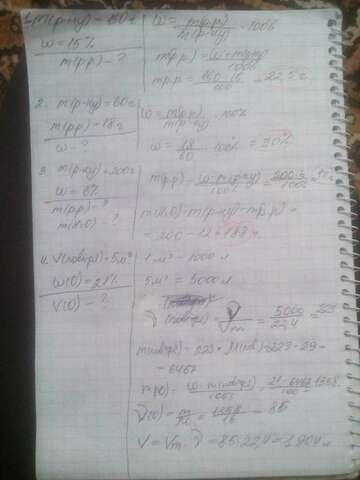 1. m(р-ну) - 150 г
w = 15%
m(р.р) - ?
w = m(р.р) / m(р-ну) · 100%
m(р.р) = w · m(р-ну) / 100%
m р.р = 150 · 15 / 100 = 22,5 г
2. m(р-ну) = 60 г
m(рр) - 18 г
w - ?
w = m(рр) / m(р-ну) · 100%
w = 18 / 60 · 100% = 30%
3. m(р-ну) = 200 г
w = 6%
m(рр) - ?
m(H2O) - ?
m(рр) = w · m(р-ну) / 100% = 200 · 6 / 100% = 12 г
m(H2O) = m(р-ну) - m р.р =
= 200 - 12 = 188 г.
4. V(повітрі) = 5 м³
w(O) = 21%
V(O) - ?
1 м³ - 1000 л
5 м³ = 5000 л
ν(повітрі) = V / Vm = 5000 / 22,4 = 223
m(повітрі) = 223 · M(пов) = 223 · 29 =
= 6467
m(O) = w · m(повітрі) / 100% = 21 · 6467 / 100 = 1358
ν(O) = m / M = 1358 / 16 = 85
V = Vm · ν = 85 · 22,4 = 1904 л